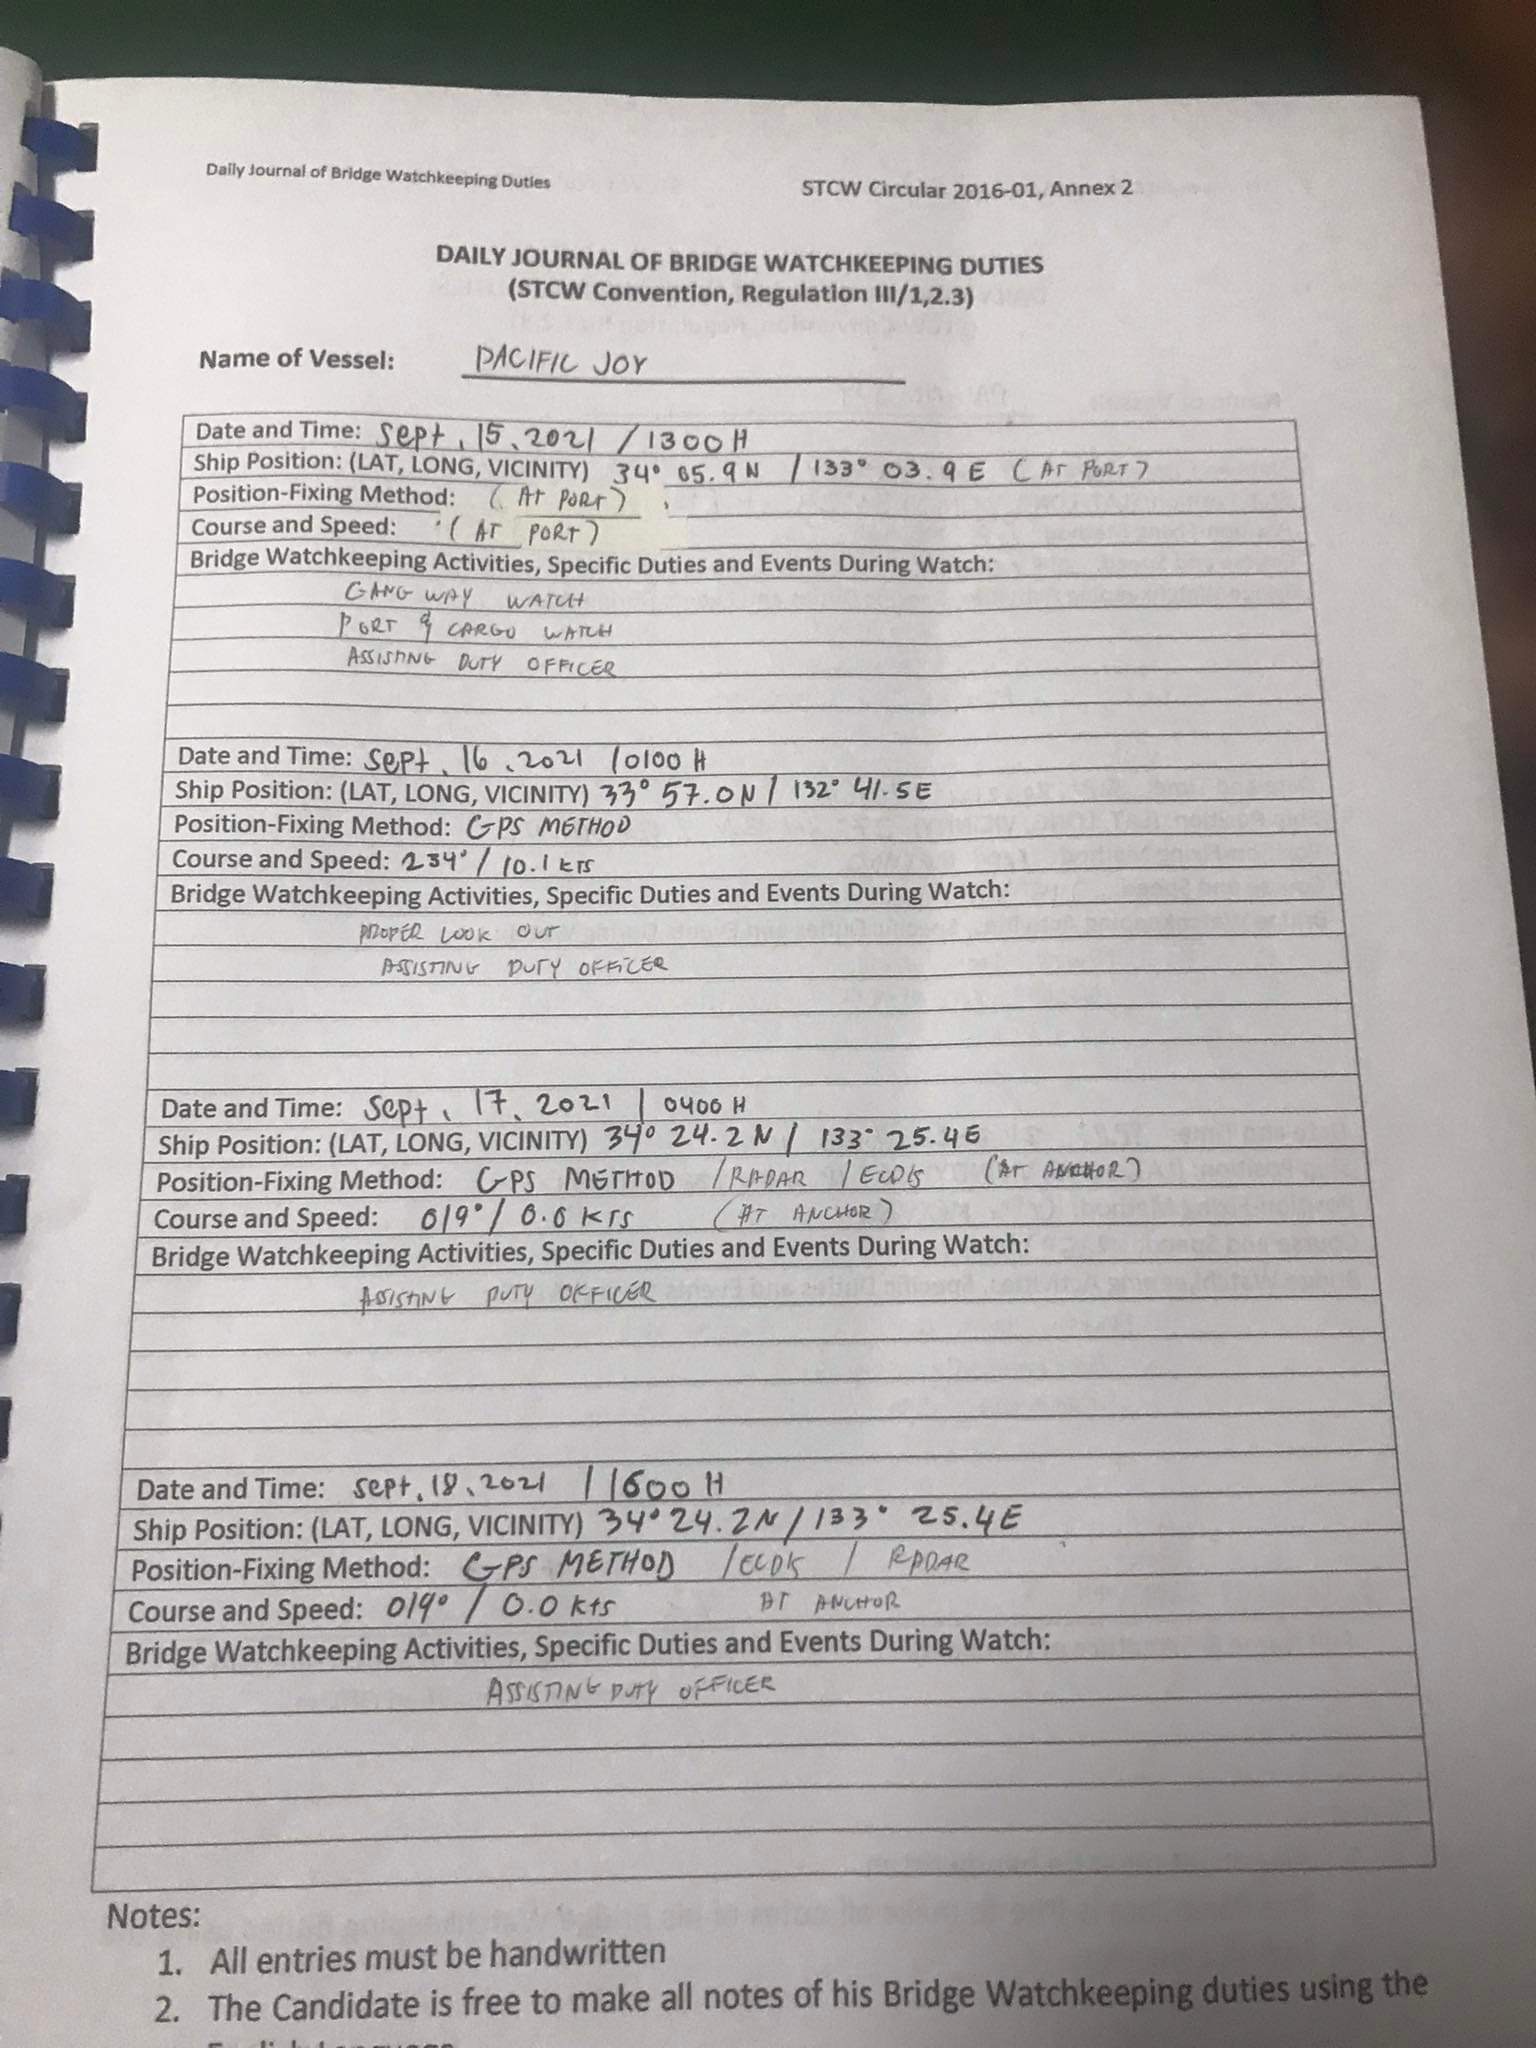 Daily Journal of Bridge Watchkeeping Duties
STCW Circular 2016-01, Annex 2
DAILY JOURNAL OF BRIDGE WATCHKEEPING DUTIES
(STCW Convention, Regulation III/1,2.3)
Name of Vessel: PACIFIC JOY
Date and Time: Sept. 15, 2021 / 1300 H
Ship Position: (LAT, LONG, VICINITY) 34° 05.9 N / 133° 03.9 E (AT PORT)
Position-Fixing Method: (AT PORT)
Course and Speed: (AT PORT)
Bridge Watchkeeping Activities, Specific Duties and Events During Watch:
GANG WAY WATCH
PORT & CARGO WATCH
ASSISTING DUTY OFFICER
Date and Time: Sept. 16, 2021 / 0100 H
Ship Position: (LAT, LONG, VICINITY) 33° 57.0 N / 132° 41.5 E
Position-Fixing Method: GPS METHOD
Course and Speed: 234° / 10.1 kTS
Bridge Watchkeeping Activities, Specific Duties and Events During Watch:
PROPER LOOK OUT
ASSISTING DUTY OFFICER
Date and Time: Sept. 17, 2021 / 0400 H
Ship Position: (LAT, LONG, VICINITY) 34° 24.2 N / 133° 25.4 E
Position-Fixing Method: GPS METHOD / RADAR / ECDIS (AT ANCHOR)
Course and Speed: 019° / 0.0 KTS (AT ANCHOR)
Bridge Watchkeeping Activities, Specific Duties and Events During Watch:
ASSISTING DUTY OFFICER
Date and Time: Sept. 18, 2021 / 1600 H
Ship Position: (LAT, LONG, VICINITY) 34° 24.2 N / 133° 25.4 E
Position-Fixing Method: GPS METHOD / ECDIS / RADAR
Course and Speed: 019° / 0.0 kts AT ANCHOR
Bridge Watchkeeping Activities, Specific Duties and Events During Watch:
ASSISTING DUTY OFFICER
Notes:
1. All entries must be handwritten
2. The Candidate is free to make all notes of his Bridge Watchkeeping duties using the